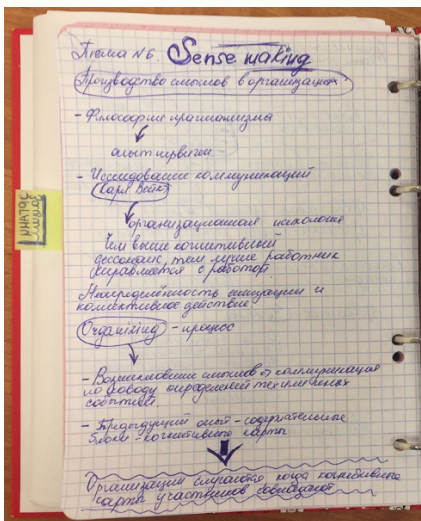 Тема №6. Sense making
Производство смыслов в организациях
- Философия прагматизма
опыт первичен
- Исследование коммуникаций
Карл Вейк
организационная психология
Чем выше когнитивный
диссонанс, тем лучше работник
справляется с работой.
Неопределённость ситуации и
коллективное действие
Organizing - процесс
- Возникновение смыслов и коммуникация
по поводу определенных событий
- Предыдущий опыт - содержательные
блоки - когнитивной карты
Организации случаются когда когнитивные
карты участников совпадают